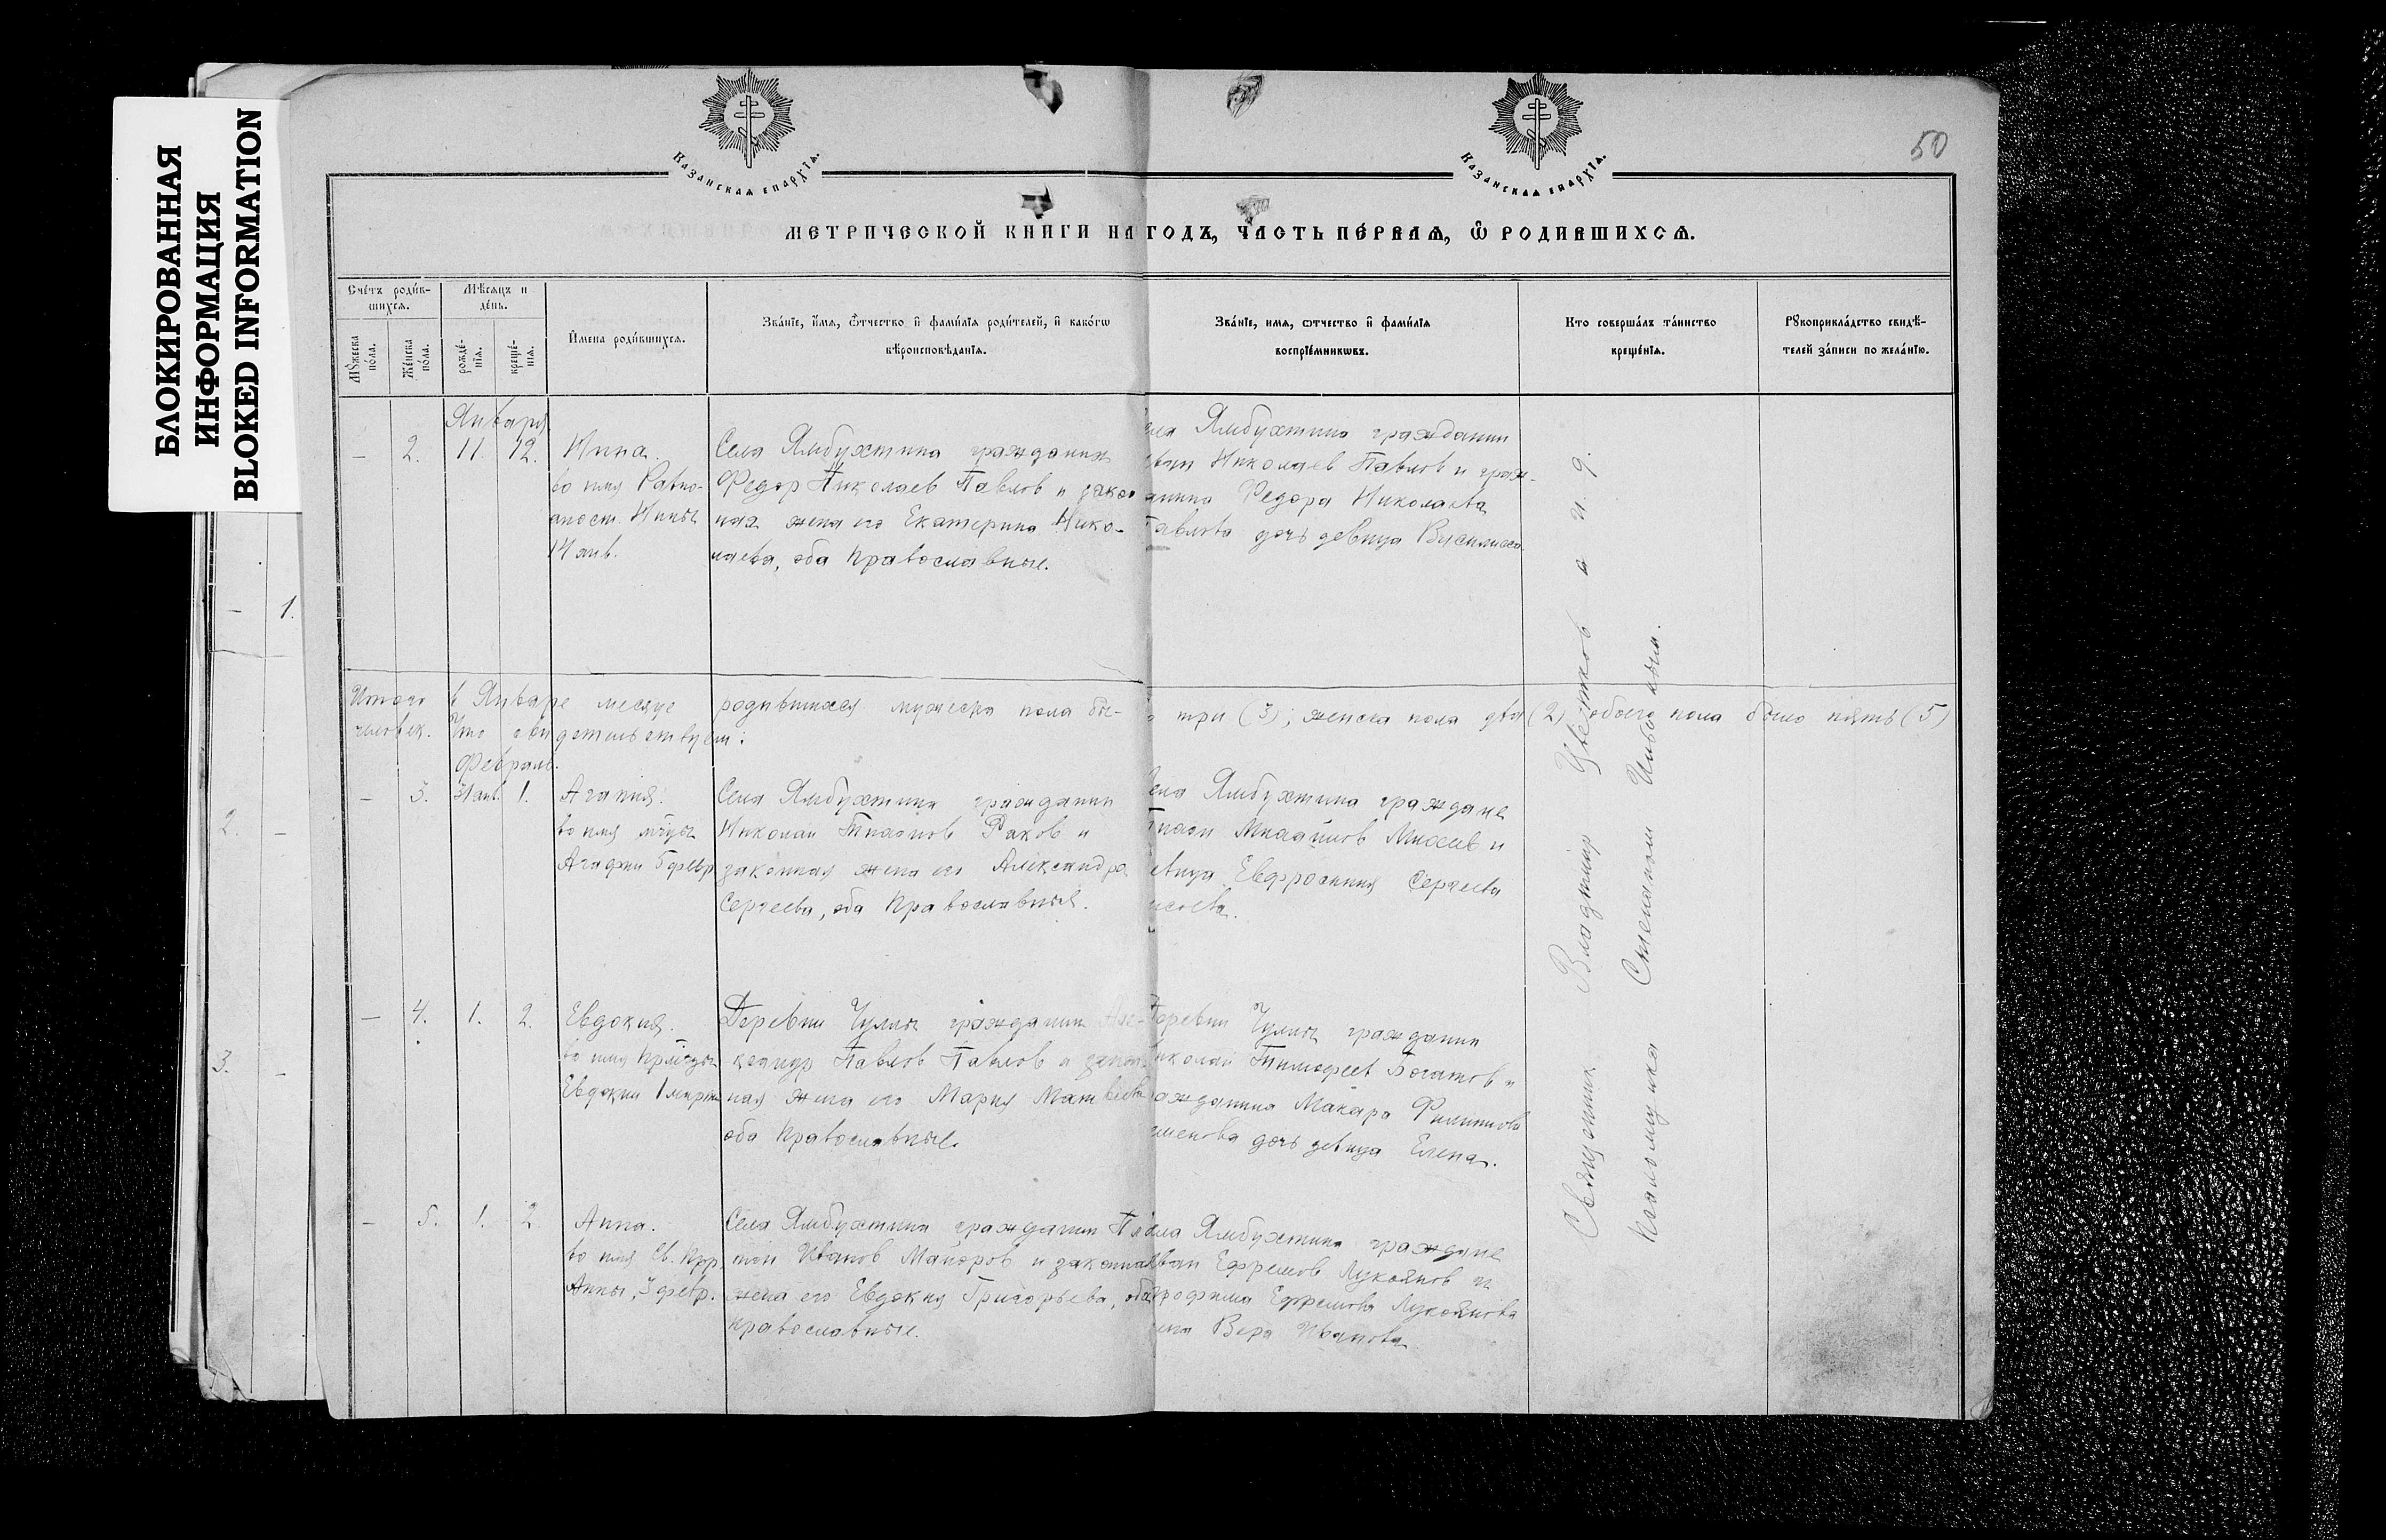 БЛОКИРОВАННАЯ
ИНФОРМАЦИЯ
BLOKED INFORMATION
Казанская епархїѧ.
Казанская епархїѧ.
50
МЕТРИЧЕСКОЙ КНИГИ НА ГОДЪ, ЧАСТЬ ПЕ́РВАѦ, Ѽ РОДИВШИХСѦ.
Сче́тъ роди́в-
шихсѧ.
Мѣ́сѧцъ и
де́нь.
Мꙋ́жеска
по́ла.
Же́нска
по́ла.
рожде́-
нїѧ.
креще́-
нїѧ.
И҆мена роди́вшихсѧ.
Зва́нїе, и҆́мѧ, ѻ҆́тчество и҆ фами́лїѧ роди́телей, и҆ како́гѡ
вѣроисповѣ́данїѧ.
Зва́нїе, имѧ, ѻтчество и҆ фами́лїѧ
воспрїе́мникѡвъ.
Кто соверша́лъ та́инство
креще́нїѧ.
Рꙋкоприкла́дство свидѣ́-
телей за́писи по жела́нїю.
Января
— 2. 11. 12. Инна.
во имя Равно-
апост. Инны
14 янв.
Села Ямбухтина гражданин
Федор Николаев Павлов и закон
ная жена его Екатерина Нико-
лаева, оба Православные.
ела Ямбухтина гражданин
Николаев Павлов и граж-
анина Федора Николаева
авлова дочь девица Василиса
Итого в Январе месяце родившихся мужеска пола бы-
о три (3), женска пола два (2) обоего пола было пять (5)
человек. Что свидетельствуем:
Февраль.
— 3. 31 янв. 1. Агапия.
во имя мчцы
Агафии 5 февр
Села Ямбухтина гражданин
Николай Раков и
законная жена его Александра
Сергеева, оба Православные.
ела Ямбухтина граждане
Михайлов и
евица Евфросиния Сергеева
— 4. 1. 2. Евдокия.
во имя Прмчцы
Евдокии 1 марта
Деревни Чулпы гражданин Але-
ксандр Павлов Павлов и закон
ная жена его Мария Матвеева
оба Православные.
еревни Чулпы гражданин
иколай Тимофеев Богатов и
ажданина Макара Филиппова
дочь девица Елена.
— 5. 1. 2 Анна.
во имя Св. Прр.
Анны, 3 февр.
Села Ямбухтина гражданин Пла
тон Иванов Майоров и законная
жена его Евдокия Григорьева, оба
православные.
ела Ямбухтина граждане
Иван Ефремов Лукоянов и
рофима Ефремова Лукоянова
ена Вера Иванова
Священник Владимир Цветков
Псаломщика Степаном
— 1.
2. —
3. —